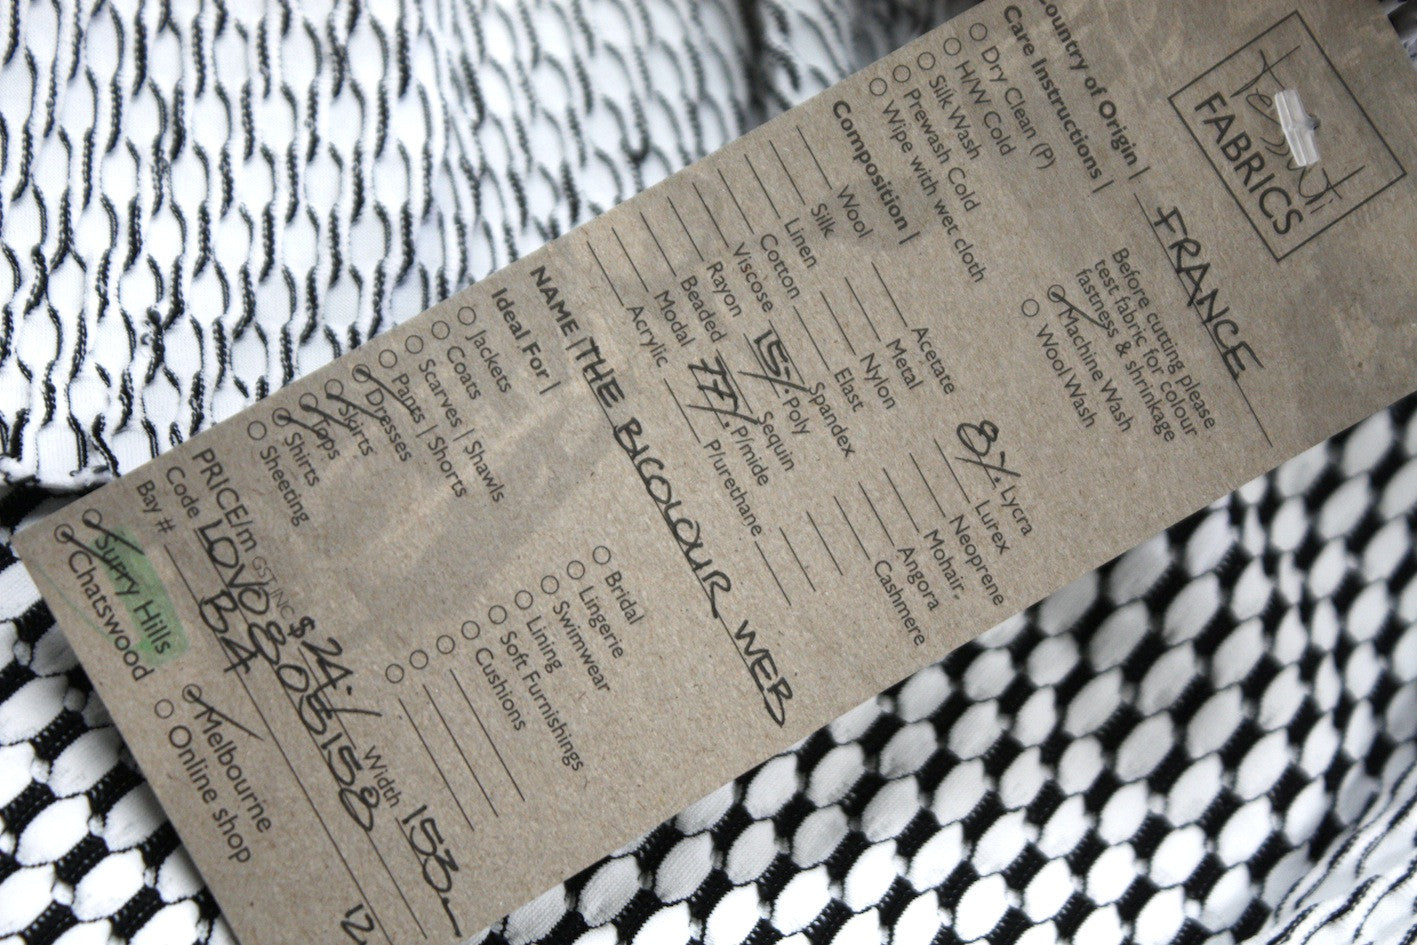 Tessuti
FABRICS
Country of Origin | FRANCE
Care Instructions |
Dry Clean (P)
H/W Cold
Silk Wash
Prewash Cold
Wipe with wet cloth
Before cutting please
test fabric for colour
fastness & shrinkage
Machine Wash
Wool Wash
Composition |
Wool
Silk
Linen
Cotton
Viscose
Rayon
Beaded
Modal
Acrylic
Acetate
Metal
Nylon
Elast
Spandex
15% Poly
Sequin
77% P/mide
P/urethane
8% Lycra
Lurex
Neoprene
Mohair
Angora
Cashmere
NAME | THE BICOLOUR WEB
Ideal For |
Jackets
Coats
Scarves | Shawls
Pants | Shorts
Dresses
Skirts
Tops
Shirts
Sheeting
Bridal
Lingerie
Swimwear
Lining
Soft Furnishings
Cushions
PRICE/m GST INC $ 24.- Width 153
Code LOV0805158
Bay # B4 12
Surry Hills
Chatswood
Melbourne
Online shop